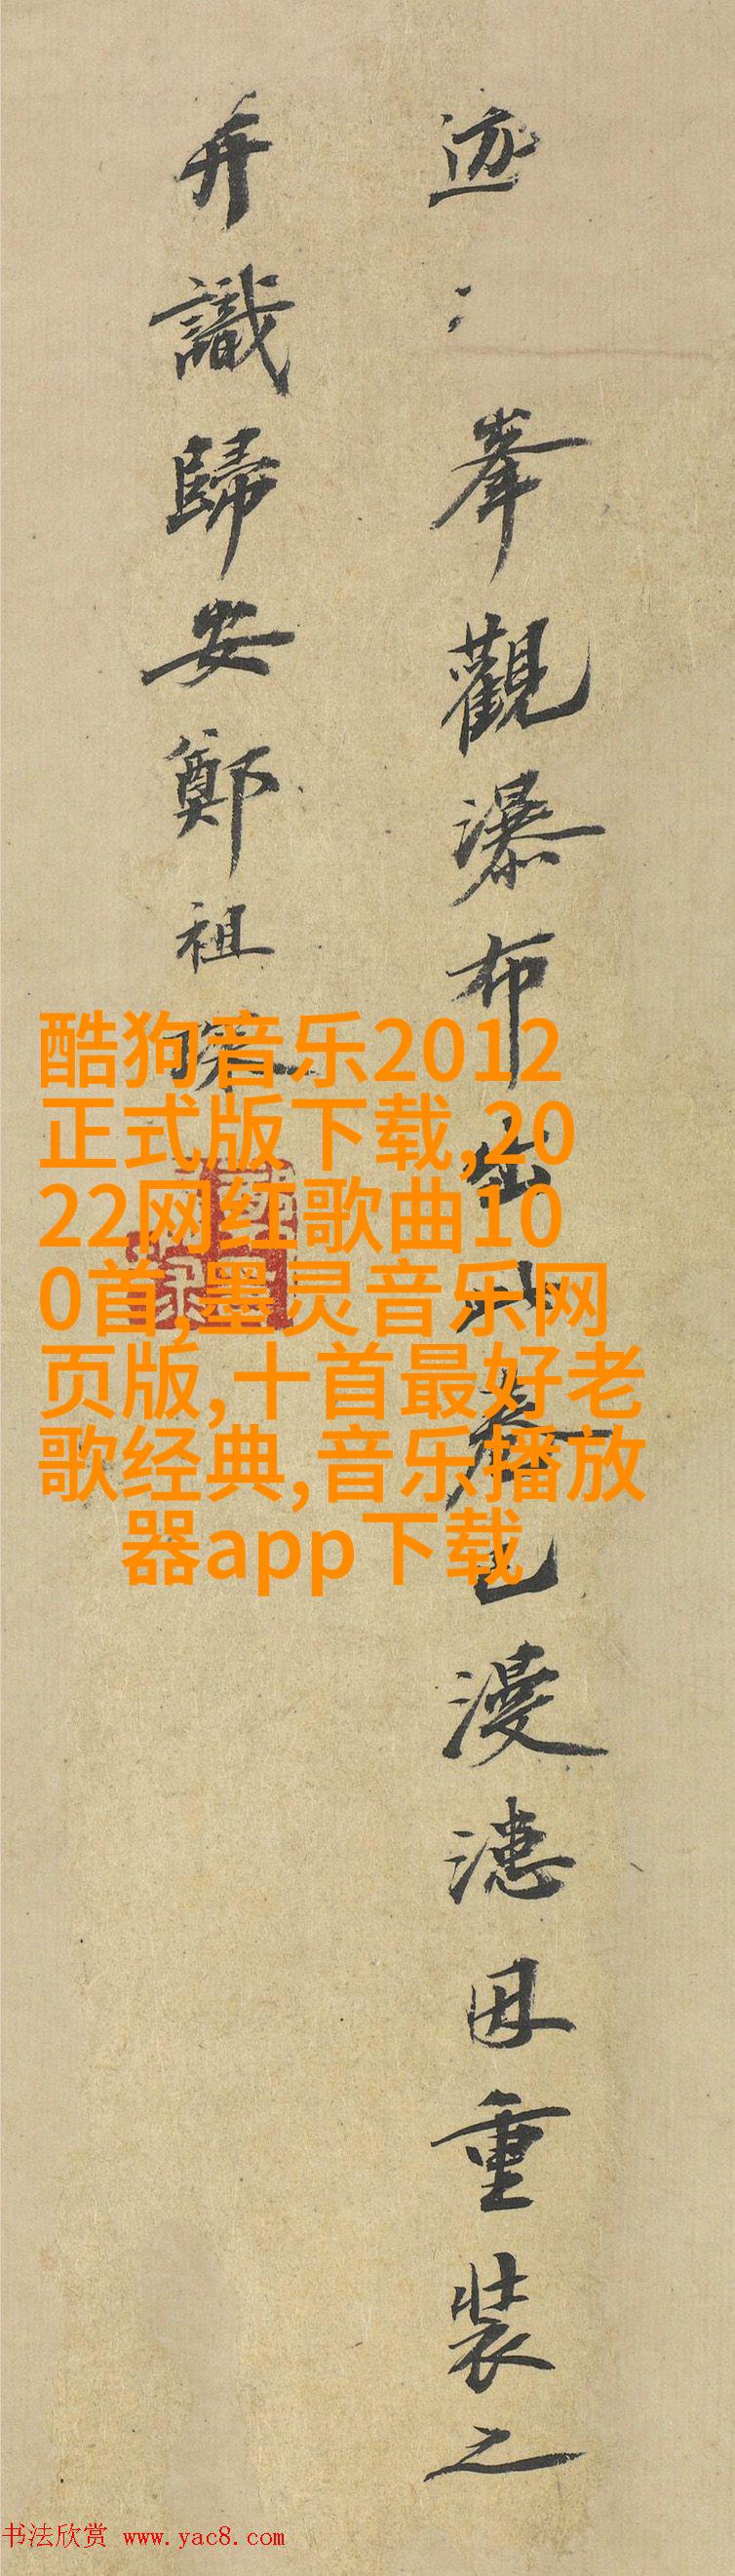 迹〻峯觀瀑布
已漫漶因重裝之
弆識歸安鄭祖琛
酷狗音乐2012
正式版下载,20
22网红歌曲10
0首,墨灵音乐网
页版,十首最好老
歌经典,音乐播放
器app下载
书法欣赏 www.yac8.com